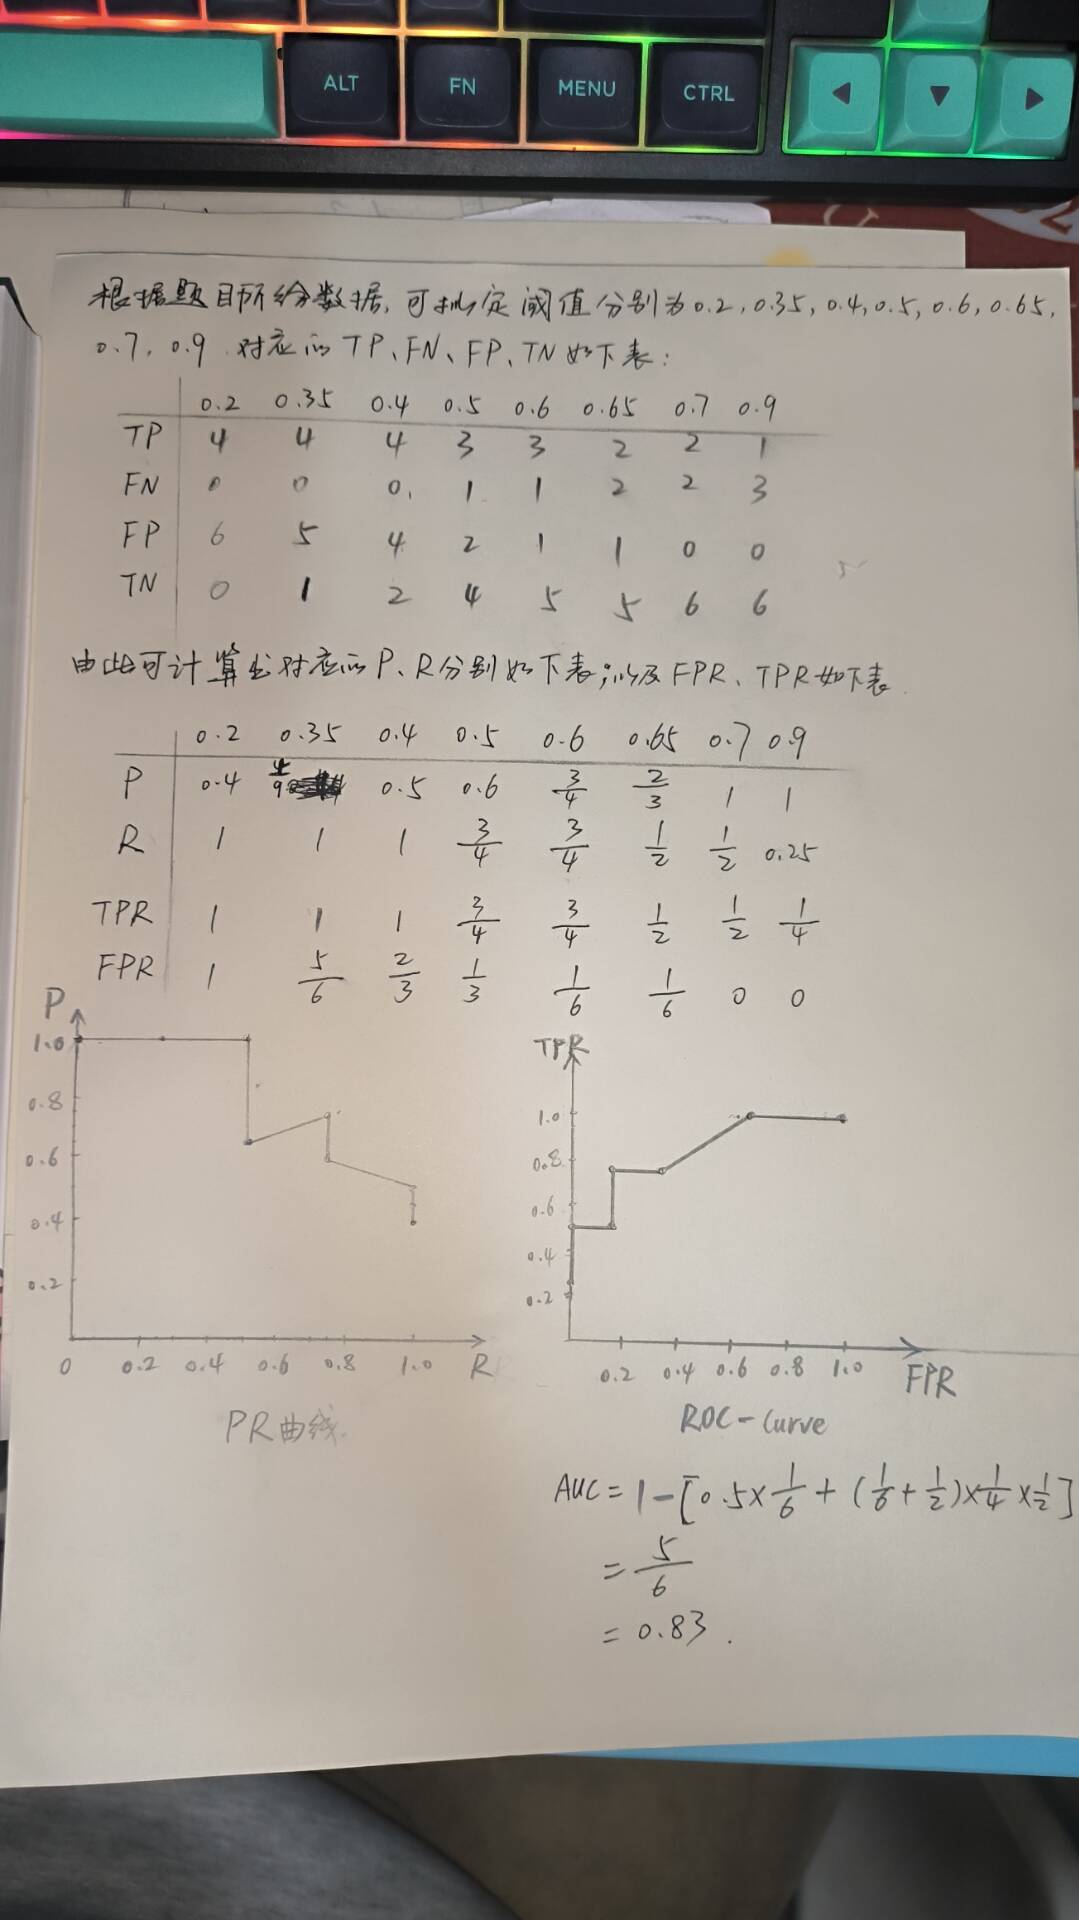 ALT FN MENU CTRL
根据题目所给数据,可拟定阈值分别为0.2,0.35,0.4,0.5,0.6,0.65,
0.7,0.9.对应的TP、FN、FP、TN如下表:
0.2 0.35 0.4 0.5 0.6 0.65 0.7 0.9
TP 4 4 4 3 3 2 2 1
FN 0 0 0. 1 1 2 2 3
FP 6 5 4 2 1 1 0 0
TN 0 1 2 4 5 5 6 6
由此可计算出对应的P、R分别如下表;以及FPR、TPR如下表
0.2 0.35 0.4 0.5 0.6 0.65 0.7 0.9
P 0.4 4/9 0.5 0.6 3/4 2/3 1 1
R 1 1 1 3/4 3/4 1/2 1/2 0.25
TPR 1 1 1 3/4 3/4 1/2 1/2 1/4
FPR 1 5/6 2/3 1/3 1/6 1/6 0 0
P
1.0
0.8
0.6
0.4
0.2
0 0.2 0.4 0.6 0.8 1.0 R
PR曲线
TPR
1.0
0.8
0.6
0.4
0.2
0.2 0.4 0.6 0.8 1.0
FPR
ROC-Curve
AUC = 1-[0.5×1/6+(1/6+1/2)×1/4×1/2]
= 5/6
= 0.83.